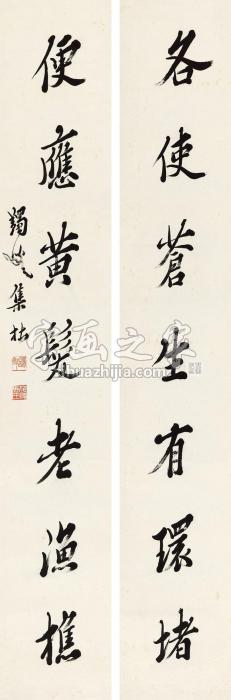 各使蒼生有環堵
便應黄髮老漁樵
蠲叟集杜
字画之家
huazhijia.com